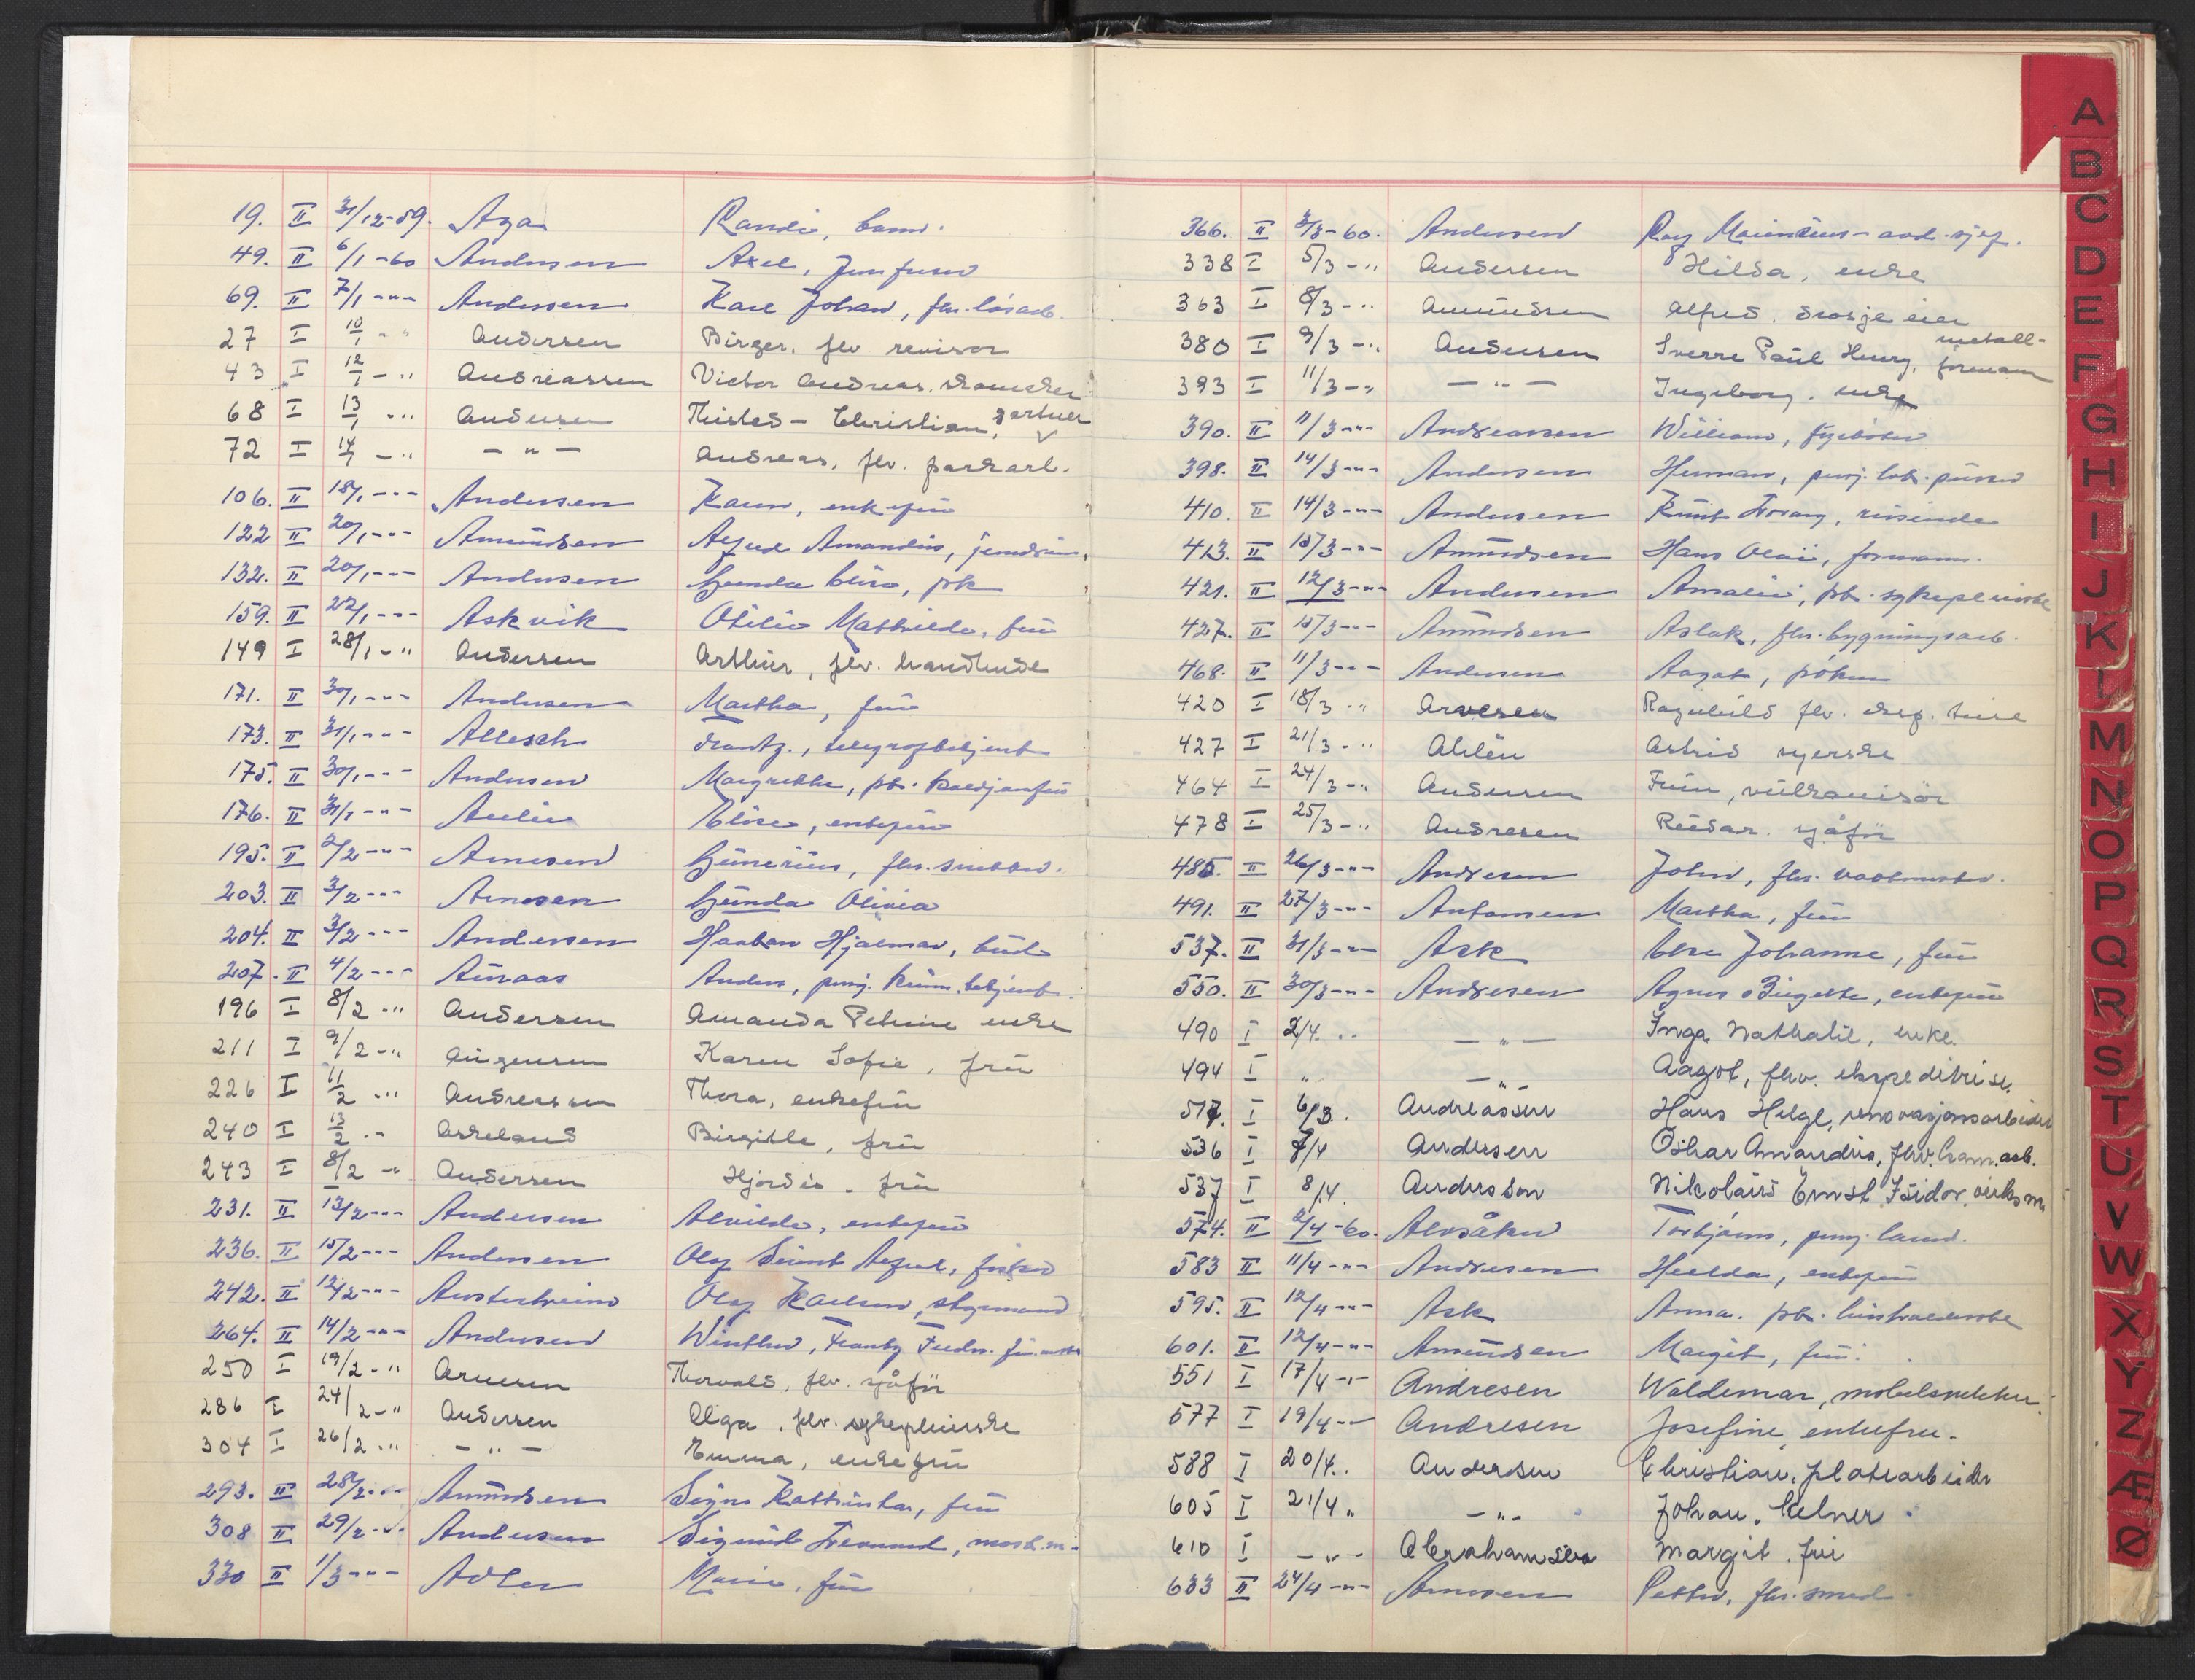 19. II 31/12-59. Aga Randi, barn.
49. II 6/1-60 Andersen Axel,
69. II 7/1 -"- Andersen Karl Johan, fhv. løsarb.
27 I 10/1 - " Andersen Birger, fhv revisor
43 I 12/1 - " Andreassen Victor Andreas, skomaker
68 I 13/1 - " Andersen Thisted - Christian, gartner
72 I 14/1 - " - " - Andreas, fhv. parkarb.
106. II 18/1 -"- Andersen Karen, enkefrü
122 II 20/1 -"- Amündsen Alfred Amandus,
132. II 20/1 -"- Andersen Gunda Elise, pk
159. II 22/1 -"- Askvik Otilie Mathilde, frü
149 I 28/1 - " Andersen Arthür, fhv. handlende
171. II 30/1 -"- Andersen Martha, frü
173. II 31/1 -"- Allesch Frantz, telegrafbetjent
175. II 30/1 -"- Andersen Margrethe, pb.
176. II 31/1 -"- Aulie Elise, enkefrü
195. II 2/2 -"- Arnesen Günerius, fhv. snekker.
203. II 3/2 -"- Arnesen Günda Olivia
204. II 3/2 -"- Andersen Haakon Hjalmar, büd
207. II 4/2 -"- Aüraas Anders, pensj. komm. betjent.
196 I 8/2 - " Andersen Amanda Petrine enke
211 I 9/2 - " Aügensen Karen Sofie, frü
226 I 11/2 - " Andreassen Thora, enkefrü
240 I 13/2 - " Askeland Birgitte, frü
243 I 8/2 - " Andersen Hjørdis - frü
231. II 13/2 -"- Andersen Alvilde, enkefrü
236. II 15/2 -"- Andersen Olaf Alfred, fisker
242. II 12/2 -"- Austerheim Olaf Karlsen, styrmand
264. II 14/2 -"- Andersen Winther, Frantz Fredr.
250 I 19/2 - " Arnesen Thorvald, fhv. sjåfør
286 I 24/2 - " Andersen Olga, fhv. sykepleierske
304 I 26/2 - " - " - Emma, enkefrü
293. II 28/2 -"- Amündsen Signe Kathinka, frü
308 II 29/2 -"- Andersen Sigurd Fernand, mask.m.
330 II 1/3 -"- Adler Marie, frü
366. II 3/3-60. Andersen Roy avd. sjef.
338 I 5/3 - " Andersen Hilda, enke
363 I 8/3 - " Amündsen Alfred, drosje eier
380 I 9/3 - " Andersen Sverre Paul Henry, metall-formann
393 I 11/3 - " - " - Ingeborg, enke
390. II 11/3 -"- Andreassen William, fyrbøter
398. II 14/3 -"- Andersen Herman, pensj.
410. II 14/3 -"- Andersen Knüt
413. II 15/3 -"- Amündsen Hans Olai, formann.
421. II 12/3 -"- Andersen Amalie, pb. sykepleierske
427. II 15/3 -"- Amündsen Aslak, fhv. bygningsarb.
468. II 11/3 -"- Andersen Aagot, frøken
420 I 18/3 - " Arvesen Ragnhild fhv. eksp. trise
427 I 21/3 - " Ahlén Astrid syerske
464 I 24/3 - " Andersen Finn, vülkanisør
478 I 25/3 - " Andresen Reidar. sjåfør
485. II 26/3 -"- Andresen John, fhv. vaktmester.
491. II 27/3 -"- Antonsen Martha, frü
537. II 31/3 -"- Ask Else Johanne, frü
550. II 30/3 -"- Andresen Agnes Birgitte, enkefrü
490 I 2/4. " - " - Inga Nathalie, enke.
494 I " - " - Aagot, fhv. ekspeditrise.
517. I 6/3. Andreassen Hans Helge, renovasjonsarbeider
536 I 7/4 Andersen Oskar Amandus, fhv. kom. arb.
537 I 8/4. Andersson Nikolaüs Ernst Isidor,
574. II 2/4-60. Alvsåker Torbjørn, pensj.
583 II 11/4 -"- Andresen Hulda, enkefrü
595. II 12/4 -"- Ask Anna. pb. hüsholderske
601. II 12/4 -"- Amündsen Margit, frü.
551 I 17/4 -"- Andresen Waldemar, møbelsnekker.
577 I 19/4 -"- Andresen Josefine, enkefru.
588 I 20/4. " Andersen Christian, platearbeider
605 I 21/4 " - " - Johan, kelner
610 I - " - Abrahamsen Margit, frü
633 II 24/4 -"- Arnesen Petter, fhv. smed.
A
B
C
D
E
F
G
H
I
J
K
L
M
N
O
P
Q
R
S
T
U
V
W
X
Y
Z
Æ
Ø